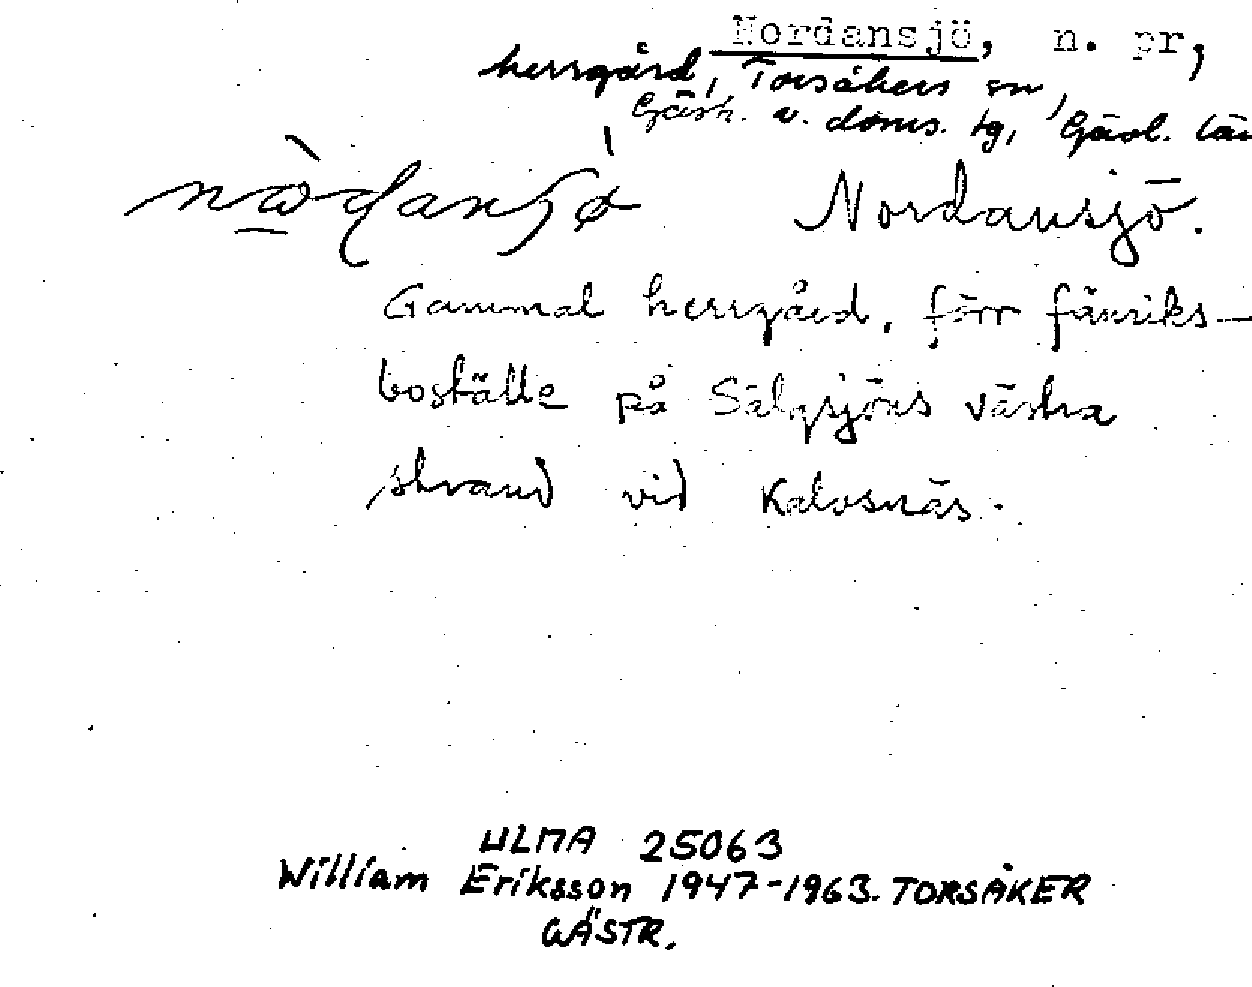 Nordansjö, n. pr,
herrgård, Torsåkers sn,
Gästr. v. doms. tg, Gävl. län
Nordansjö.
Gammal herrgård, förr fänriks-
boställe på Sälgsjöns västra
strand vid Kalvsnäs.
ULMA 25063
William Eriksson 1947-1963. TORSÅKER
GÄSTR.